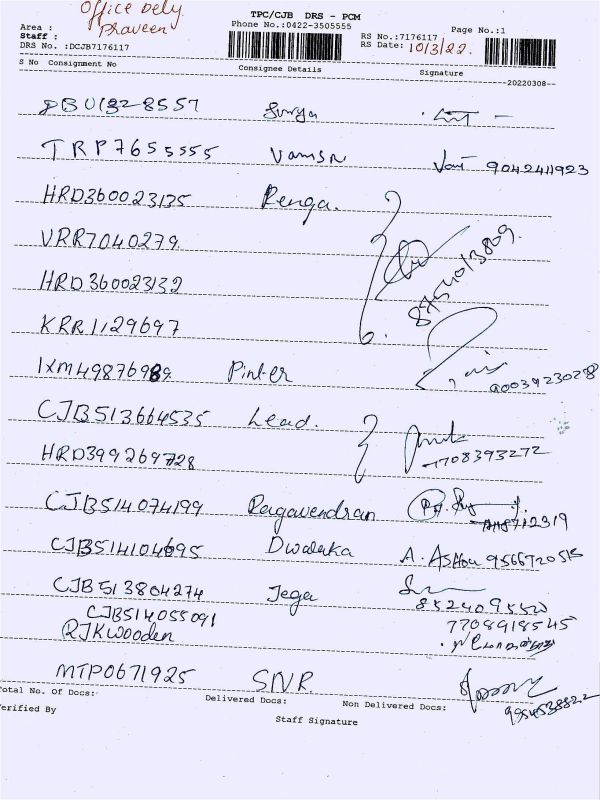 Office Dely
Praveen
TPC/CJB DRS - PCM
Area :
Phone No.:0422-3505555
Page No.:1
Staff :
RS No.:7176117
DRS No. :DCJB7176117
RS Date: 10/3/22.
S No Consignment No Consignee Details Signature
20220308
Surya
TRP7655555 Vamsn 9042411923
HRD360023135 Renga.
VRR7040279
HRD360023132 8754013809.
KRR1129697
IXM49876989 Pinter
90039230298
CJB513664535 Lead.
HRD399269728 7708393272
CJB514074199 Ragavendran
8712319
CJB514104695 Dwalaka A. Ashok
CJB513804274 Jega
CJB514055091
7708918545
RJKwooden
MTP0671925 SNR.
Total No. of Docs: Delivered Docs: Non Delivered Docs:
Verified By
Staff Signature